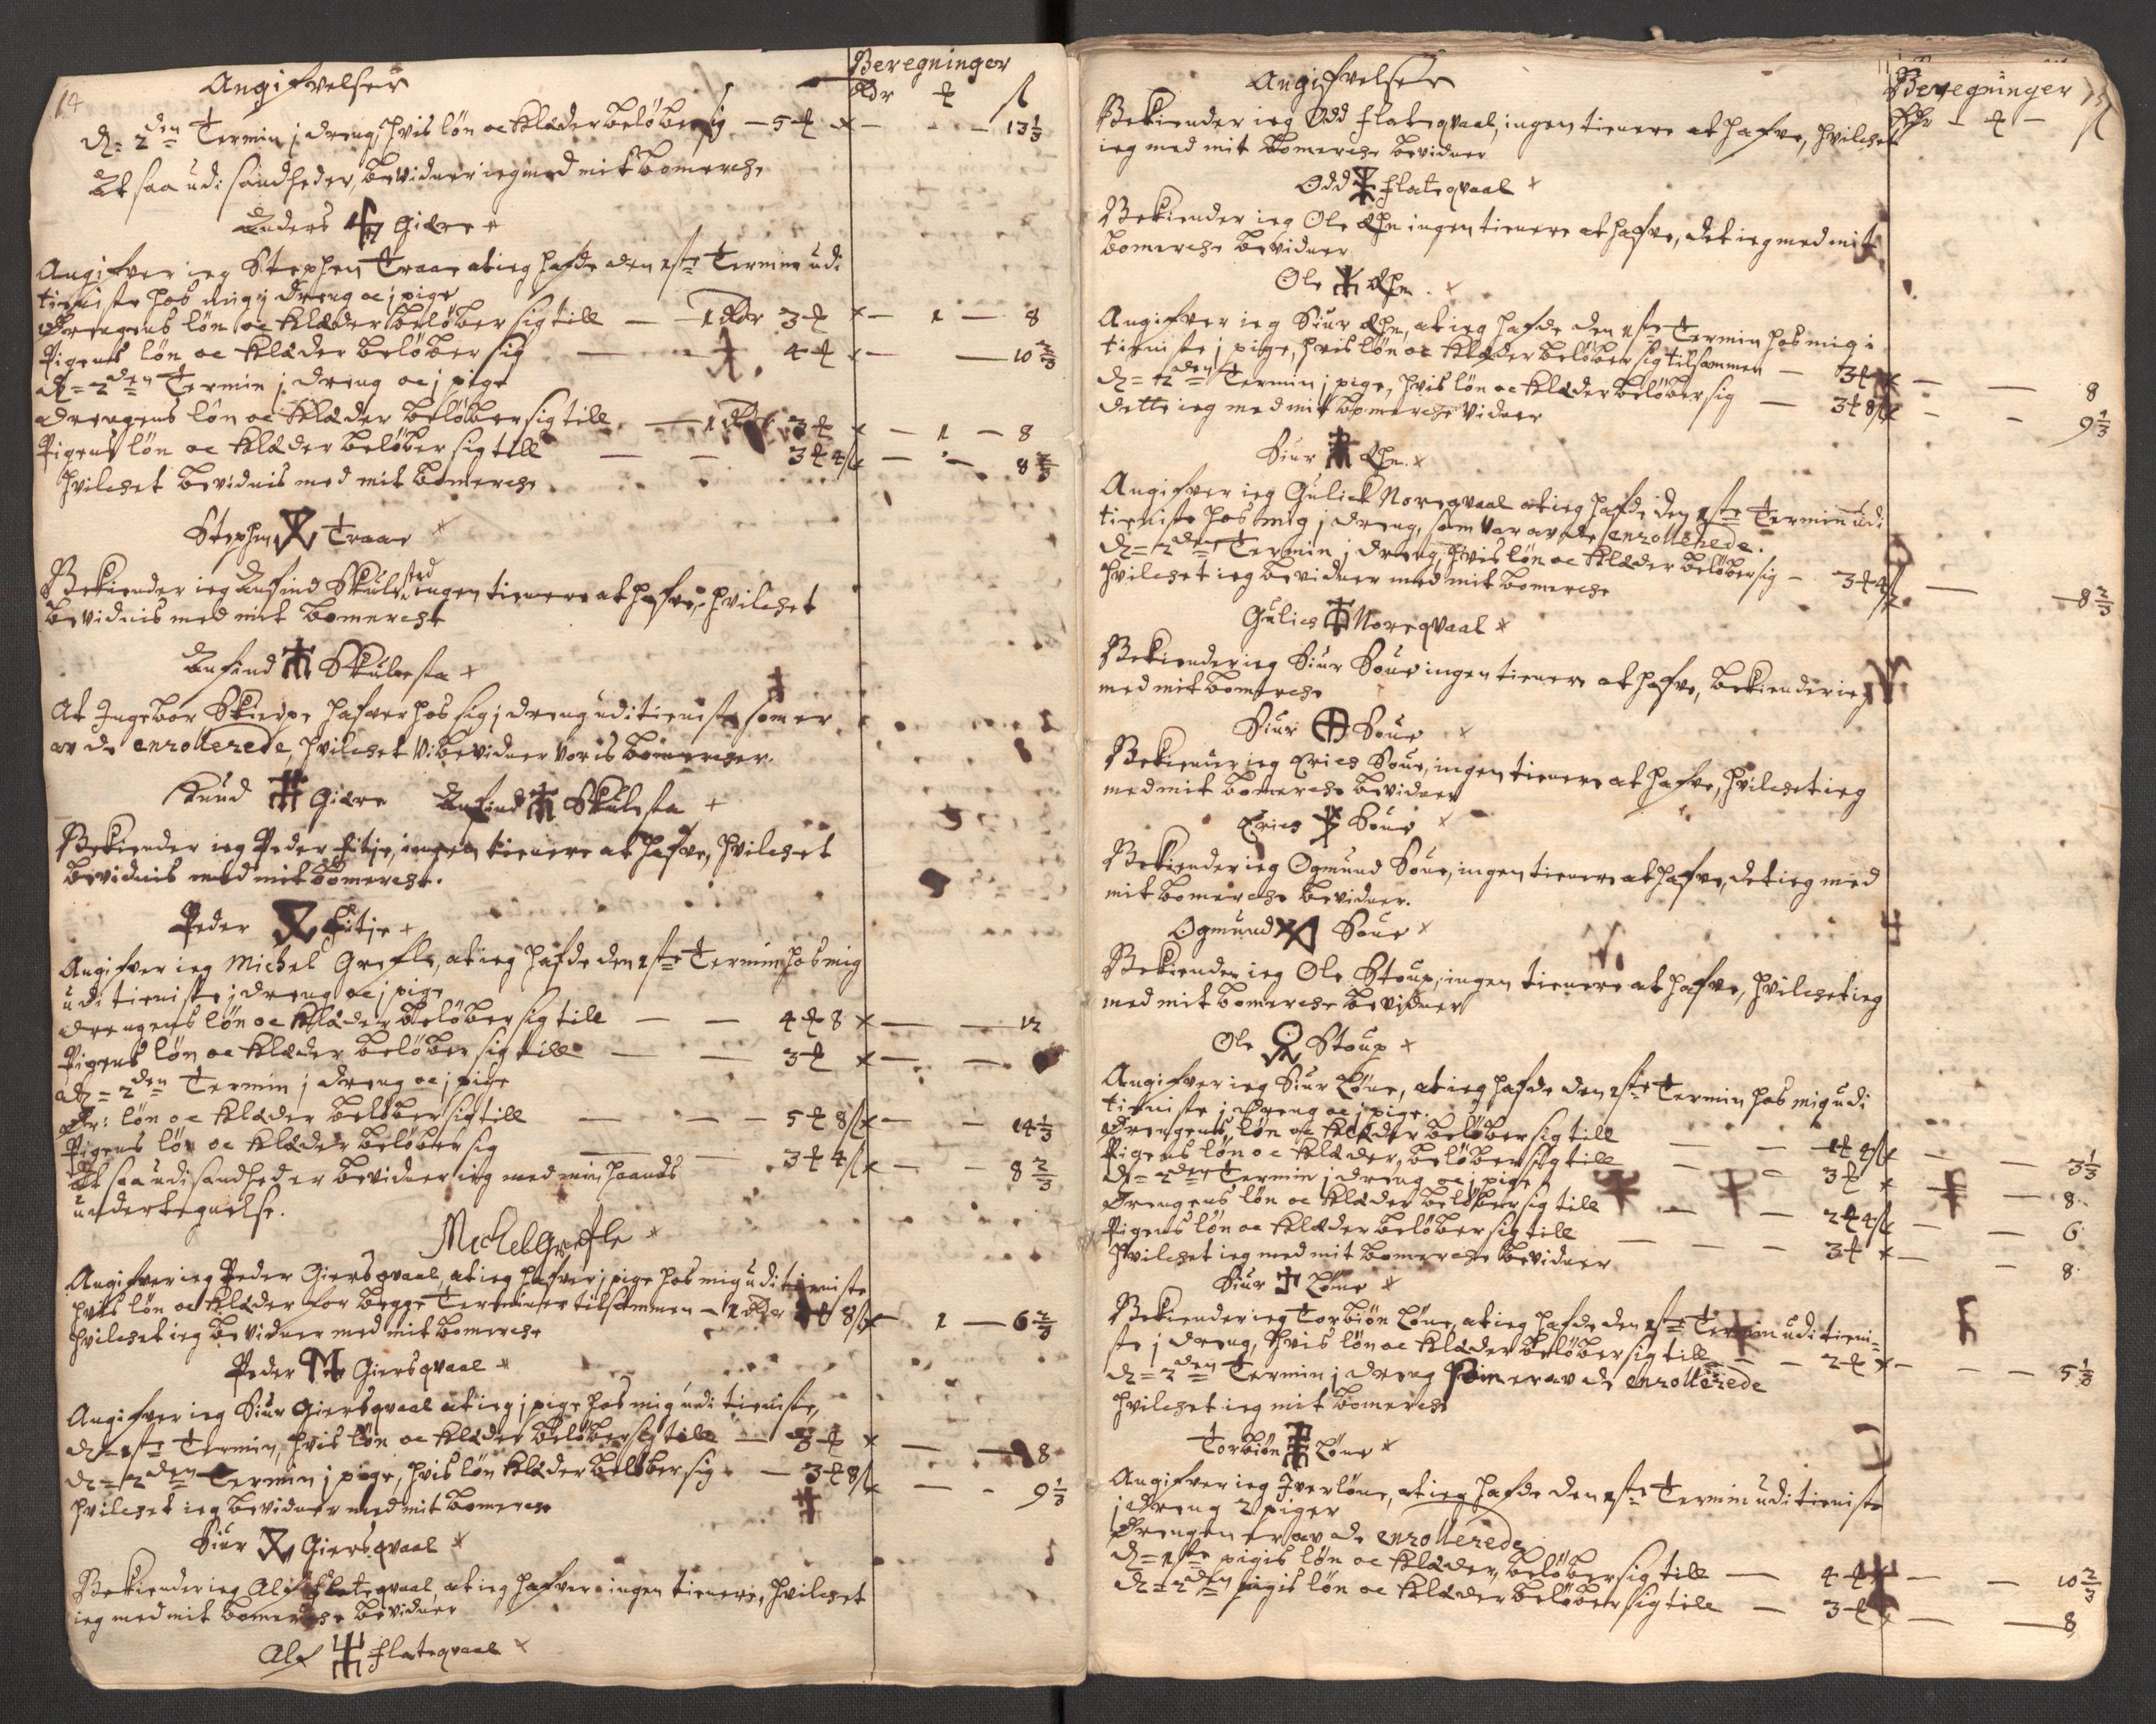 14
Angifvelser
Beregninger
Rdr ʒ ß
D= 2den Termin j dreng, hvis løn oc klæder beløber sig — 5 ʒ x — — 13 1/3
At saa udi sandheder, bevidner ieg med mit bomerche
Anders Giære x
Angifver ieg Stephen Traae at ieg hafde den 1ste Termin udi
tieniste hos mig j dreng oc j pige
Drengens løn oc klæder beløber sig till — 1 Rdr 3 ʒ x — 1 — 8
Pigens løn oc klæder beløber sig — 4 ʒ x — — 10 2/3
D= 2den Termin j dreng oc j pige
drengens løn oc klæder beløber sig till — 1 Rdr 3 ʒ x — 1 — 8
Pigens løn oc klæder beløber sig till — — 3 ʒ 4 ß x — — 8 2/3
hvilchet bevidnis med mit bomerche
Stephen Traae x
Bekiender ieg Anfind Skulestad ingen tienere at hafve, hvilchet
bevidnis med mit bomerche
Anfind Skulesta x
At Ingebor Skierpe hafver hos sig j dreng udi tieniste som er
av de enrollerede, hvilchet vi bevidner voris bomercher.
Knud Giære Anfind Skulesta x
Bekiender ieg Peder Fitje, ingen tienere at hafve, hvilchet
bevidnis med mit bomerche.
Peder Fitje x
Angifver ieg Michel Grefle, at ieg hafde den 1ste Termin hos mig
udi tieniste j dreng oc j pige
drengens løn oc klæder beløber sig till — — 4 ʒ 8 x — — 12
Pigens løn oc klæder beløber sig till — — 3 ʒ x — —
D= 2den Termin j dreng oc j pige
Dr: løn oc klæder beløber sig till — — 5 ʒ 8 ß x — — 14 1/3
Pigens løn oc klæder beløber sig — — 3 ʒ 4 ß x — — 8 2/3
At saa udi sandheder bevidner ieg med min haands
undertegnelse.
Michel Grefle x
Angifver ieg Peder Giersqvaal, at ieg hafver j pige hos mig udi tieniste
hvis løn oc klæder for begge Terminer tilsammen — 1 Rdr 2 ʒ 8 ß x — 1 — 6 2/3
hvilchet ieg bevidner med mit bomerche
Peder Giersqvaal x
Angifver ieg Siur Giersqvaal at ieg j pige hos mig udi tieniste,
D= 1ste Termin, hvis løn oc klæder beløber sig till — 3 ʒ x — — 8
D= 2den Termin j pige, hvis løn klæder beløber sig — 3 ʒ 8 ß x — — 9 1/3
hvilchet ieg bevidner med mit bomerche
Siur Giersqvaal x
Bekiender ieg Alf Flateqvaal, at ieg hafver ingen tienere, hvilchet
ieg med mit bomerche bevidner
Alf Flateqvaal x
15
Angifvelser
Beregninger
Rdr — ʒ — ß
Bekiender ieg Odd Flateqvaal, ingen tienere at hafve, hvilchet
ieg med mit bomerche bevidner
Odd Flateqvaal x
Bekiender ieg Ole Æhn ingen tienere at hafve, det ieg med mit
bomerche bevidner
Ole Æhn x
Angifver ieg Siur Æhn, at ieg hafde den 1ste Termin hos mig i
tieniste j pige, hvis løn oc klæder beløber sig tilsammen — 3 ʒ x — — 8
D= 2den Termin j pige, hvis løn oc klæder beløber sig — 3 ʒ 8 ß x — — 9 1/3
dette ieg med mit bomerche vidner
Siur Æhn x
Angifver ieg Gulick Noreqvaal at ieg hafde den 1ste Termin udi
tieniste hos mig j dreng, som var av de enrollerede.
D= 2den Termin j dreng, hvis løn oc klæder beløber sig — 3 ʒ 4 ß x — — 8 2/3
hvilchet ieg bevidner med mit bomerche
Gulich Noreqvaal x
Bekiender ieg Siur Soue ingen tienere at hafve, bekiender ieg
med mit bomerche
Siur Soue x
Bekiener ieg Erich Soue, ingen tienere at hafve, hvilchet ieg
med mit bomerche bevidner
Erich Soue x
Bekiender ieg Ogmund Soue, ingen tienere at hafve, det ieg med
mit bomerche bevidner.
Ogmund Soue x
Bekiender ieg Ole Stoup, ingen tienere at hafve, hvilchet ieg
med mit bomerche bevidner
Ole Stoup x
Angifver ieg Siur Løne, at ieg hafde den 1ste Termin hos mig udi
tieniste j dreng oc j pige.
Drengens løn oc klæder beløber sig till — — 1 ʒ 4 ß x — — 3 1/3
Pigens løn oc klæder, beløber sig till — — 3 ʒ x — — 8
D= 2den Termin j dreng oc j pige
Drengens løn oc klæder beløber sig till — — 2 ʒ 4 ß x — — 6
Pigens løn oc klæder beløber sig till — — 3 ʒ x — — 8
hvilchet ieg med mit bomerche bevidner
Siur Løne x
Bekiender ieg Torbiøn Løne, at ieg hafde den 1ste Termin udi tieni-
ste j dreng, hvis løn oc klæder beløber sig till — — 2 ʒ x — — 5 1/3
D= 2den Termin j dreng som er av de enrollerede
hvilchet ieg mit bomerche
Torbiøn Løne x
Angifver ieg Iver Løne, at ieg hafde den 1ste Termin udi tieniste
j dreng 2 piger
Drengen er av de enrollerede
D= 1ste pigis løn oc klæder, beløber sig till — 4 ʒ x — — 10 2/3
D= 2den pigis løn oc klæder beløber sig till — 3 ʒ x — — 8